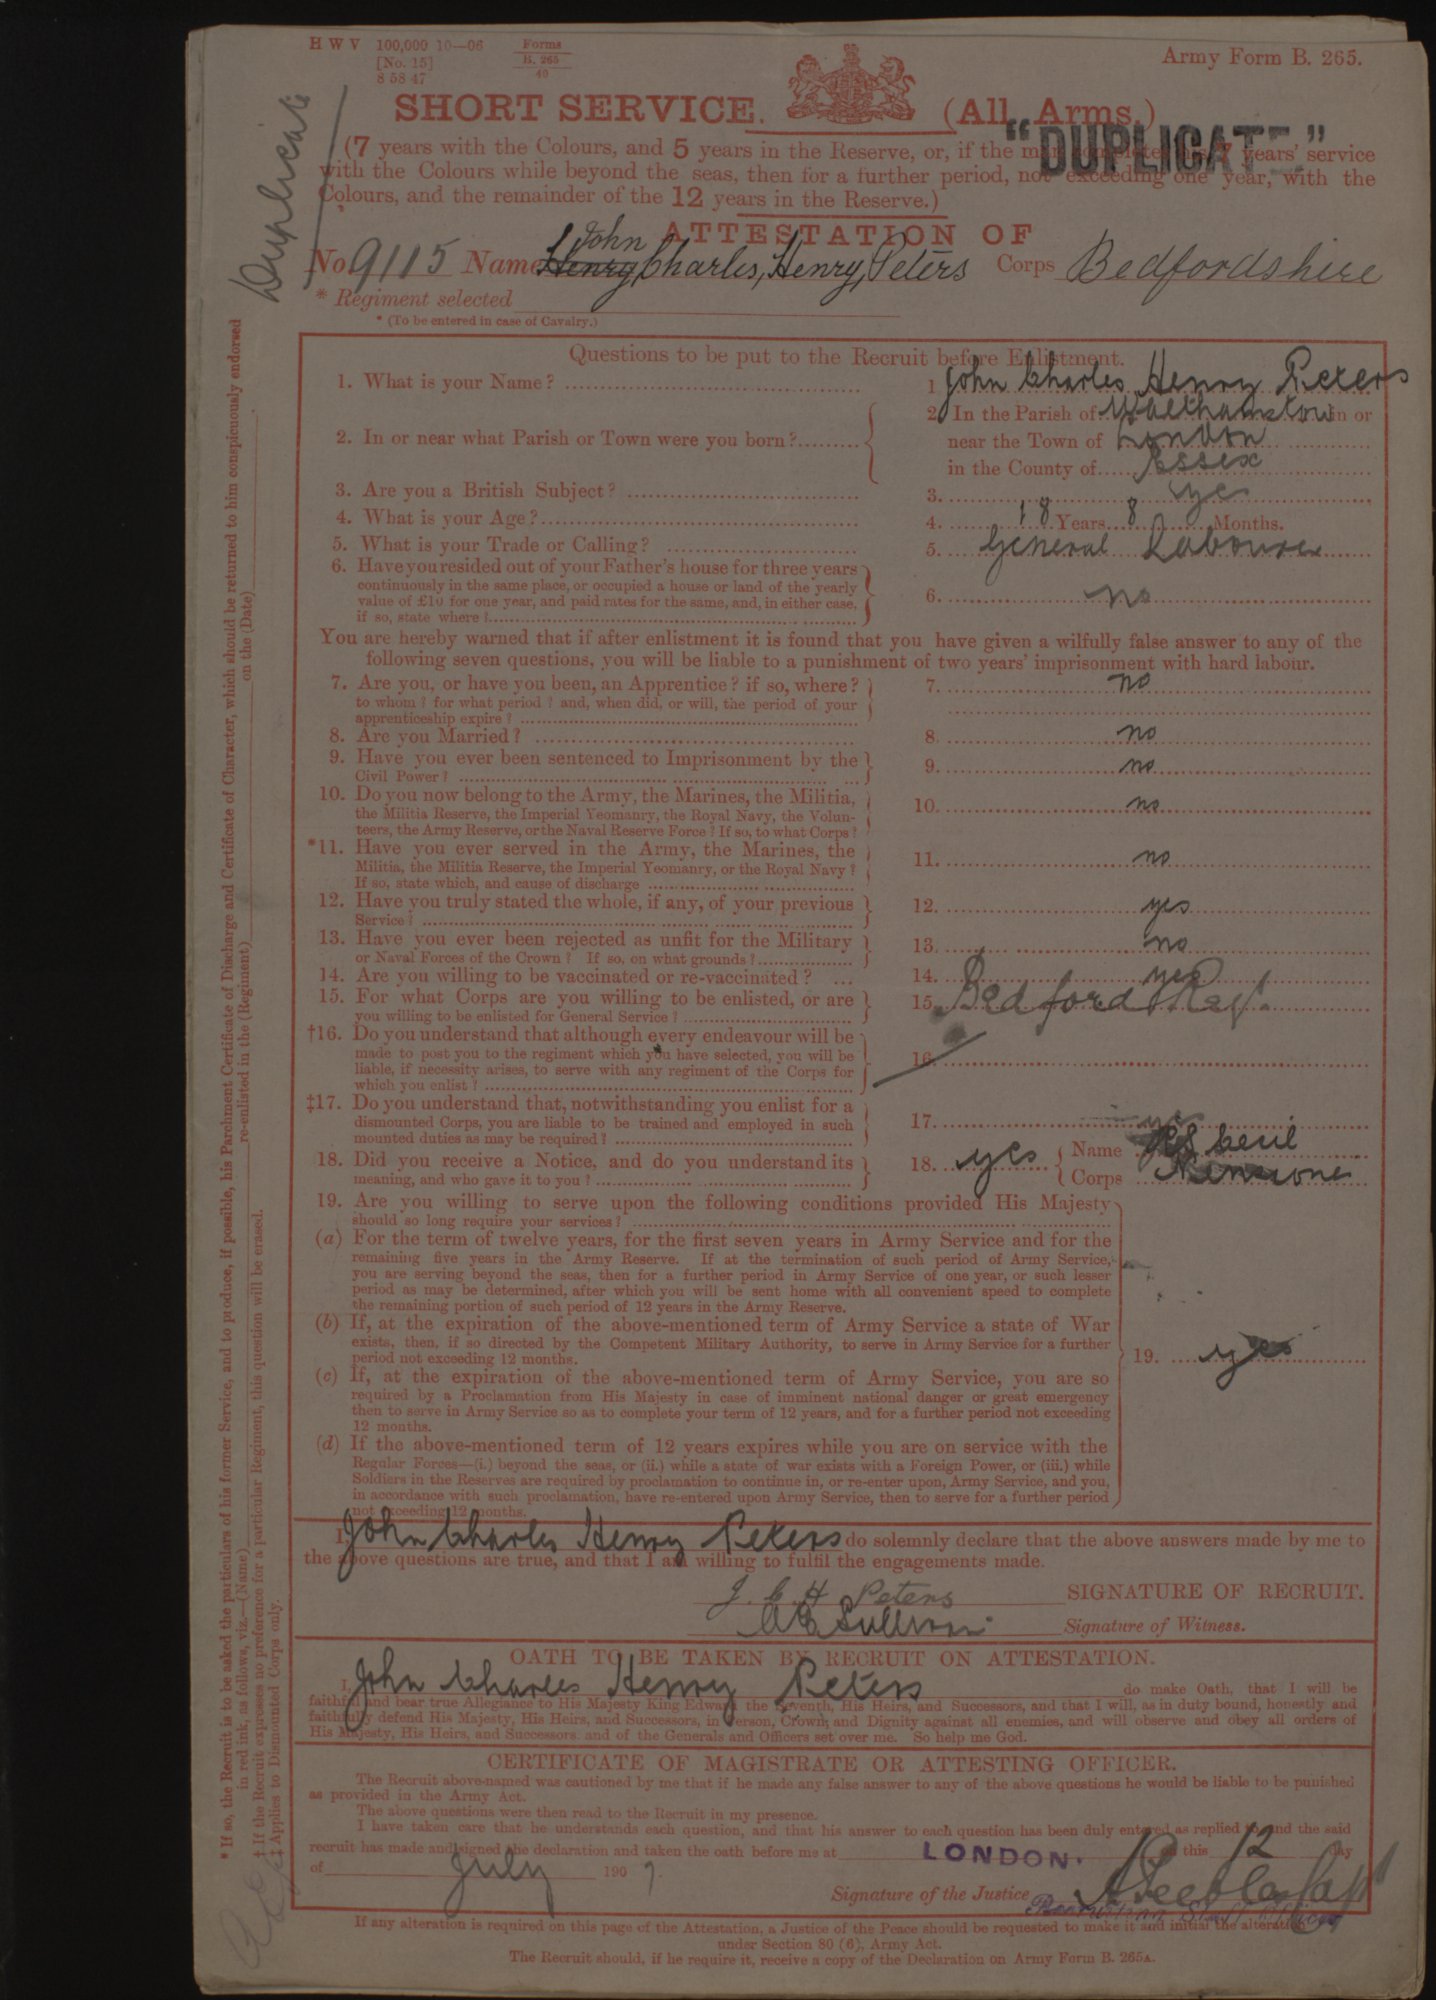 H W V 100,000 10—06 Forms
[No. 15] B. 265
8 58 47 40
Army Form B. 265.
Duplicate
SHORT SERVICE. (All Arms.)
"DUPLICATE"
(7 years with the Colours, and 5 years in the Reserve, or, if the man completes his 7 years' service
with the Colours while beyond the seas, then for a further period, not exceeding one year, with the
Colours, and the remainder of the 12 years in the Reserve.)
ATTESTATION OF
John
No 9115 Name Henry, Charles, Henry, Peters Corps Bedfordshire
* Regiment selected
* (To be entered in case of Cavalry.)
Questions to be put to the Recruit before Enlistment.
1. What is your Name? 1 John Charles Henry Peters
2. In or near what Parish or Town were you born? 2. In the Parish of Walthamstow in or
near the Town of London
in the County of Essex
3. Are you a British Subject? 3. yes
4. What is your Age? 4. 18 Years 8 Months.
5. What is your Trade or Calling? 5. General Labourer
6. Have you resided out of your Father's house for three years
continuously in the same place, or occupied a house or land of the yearly
value of £10 for one year, and paid rates for the same, and, in either case,
if so, state where? 6. no
You are hereby warned that if after enlistment it is found that you have given a wilfully false answer to any of the
following seven questions, you will be liable to a punishment of two years' imprisonment with hard labour.
7. Are you, or have you been, an Apprentice? if so, where? 7. no
to whom? for what period? and, when did, or will, the period of your
apprenticeship expire?
8. Are you Married? 8. no
9. Have you ever been sentenced to Imprisonment by the
Civil Power? 9. no
10. Do you now belong to the Army, the Marines, the Militia,
the Militia Reserve, the Imperial Yeomanry, the Royal Navy, the Volun-
teers, the Army Reserve, or the Naval Reserve Force? If so, to what Corps? 10. no
*11. Have you ever served in the Army, the Marines, the
Militia, the Militia Reserve, the Imperial Yeomanry, or the Royal Navy?
If so, state which, and cause of discharge 11. no
12. Have you truly stated the whole, if any, of your previous
Service? 12. yes
13. Have you ever been rejected as unfit for the Military
or Naval Forces of the Crown? If so, on what grounds? 13. no
14. Are you willing to be vaccinated or re-vaccinated? 14. yes
15. For what Corps are you willing to be enlisted, or are
you willing to be enlisted for General Service? 15. Bedford Regt.
†16. Do you understand that although every endeavour will be
made to post you to the regiment which you have selected, you will be
liable, if necessity arises, to serve with any regiment of the Corps for
which you enlist? 16
‡17. Do you understand that, notwithstanding you enlist for a
dismounted Corps, you are liable to be trained and employed in such
mounted duties as may be required? 17. yes
18. Did you receive a Notice, and do you understand its
meaning, and who gave it to you? 18. yes Name
Corps
19. Are you willing to serve upon the following conditions provided His Majesty
should so long require your services?
(a) For the term of twelve years, for the first seven years in Army Service and for the
remaining five years in the Army Reserve. If at the termination of such period of Army Service,
you are serving beyond the seas, then for a further period in Army Service of one year, or such lesser
period as may be determined, after which you will be sent home with all convenient speed to complete
the remaining portion of such period of 12 years in the Army Reserve.
(b) If, at the expiration of the above-mentioned term of Army Service a state of War
exists, then, if so directed by the Competent Military Authority, to serve in Army Service for a further
period not exceeding 12 months. 19. yes
(c) If, at the expiration of the above-mentioned term of Army Service, you are so
required by a Proclamation from His Majesty in case of imminent national danger or great emergency
then to serve in Army Service so as to complete your term of 12 years, and for a further period not exceeding
12 months.
(d) If the above-mentioned term of 12 years expires while you are on service with the
Regular Forces—(i.) beyond the seas, or (ii.) while a state of war exists with a Foreign Power, or (iii.) while
Soldiers in the Reserves are required by proclamation to continue in, or re-enter upon, Army Service, and you,
in accordance with such proclamation, have re-entered upon Army Service, then to serve for a further period
not exceeding 12 months.
I, John Charles Henry Peters do solemnly declare that the above answers made by me to
the above questions are true, and that I am willing to fulfil the engagements made.
J. C. H Peters SIGNATURE OF RECRUIT.
Sullivan Signature of Witness.
OATH TO BE TAKEN BY RECRUIT ON ATTESTATION.
I, John Charles Henry Peters do make Oath, that I will be
faithful and bear true Allegiance to His Majesty King Edward the Seventh, His Heirs, and Successors, and that I will, as in duty bound, honestly and
faithfully defend His Majesty, His Heirs, and Successors, in Person, Crown, and Dignity against all enemies, and will observe and obey all orders of
His Majesty, His Heirs, and Successors. and of the Generals and Officers set over me. So help me God.
CERTIFICATE OF MAGISTRATE OR ATTESTING OFFICER.
The Recruit above-named was cautioned by me that if he made any false answer to any of the above questions he would be liable to be punished
as provided in the Army Act.
The above questions were then read to the Recruit in my presence.
I have taken care that he understands each question, and that his answer to each question has been duly entered as replied to, and the said
recruit has made and signed the declaration and taken the oath before me at LONDON. on this 12 day
of July 1907.
Signature of the Justice A Peebles Capt
Recruiting Staff Officer
If any alteration is required on this page of the Attestation, a Justice of the Peace should be requested to make it and initial the alteration
under Section 80 (6), Army Act.
The Recruit should, if he require it, receive a copy of the Declaration on Army Form B. 265A.
* If so, the Recruit is to be asked the particulars of his former Service, and to produce, if possible, his Parchment Certificate of Discharge and Certificate of Character, which should be returned to him conspicuously endorsed
in red ink, as follows, viz.—(Name) re-enlisted in the (Regiment) on the (Date)
† If the Recruit expresses no preference for a particular Regiment, this question will be erased.
‡ Applies to Dismounted Corps only.